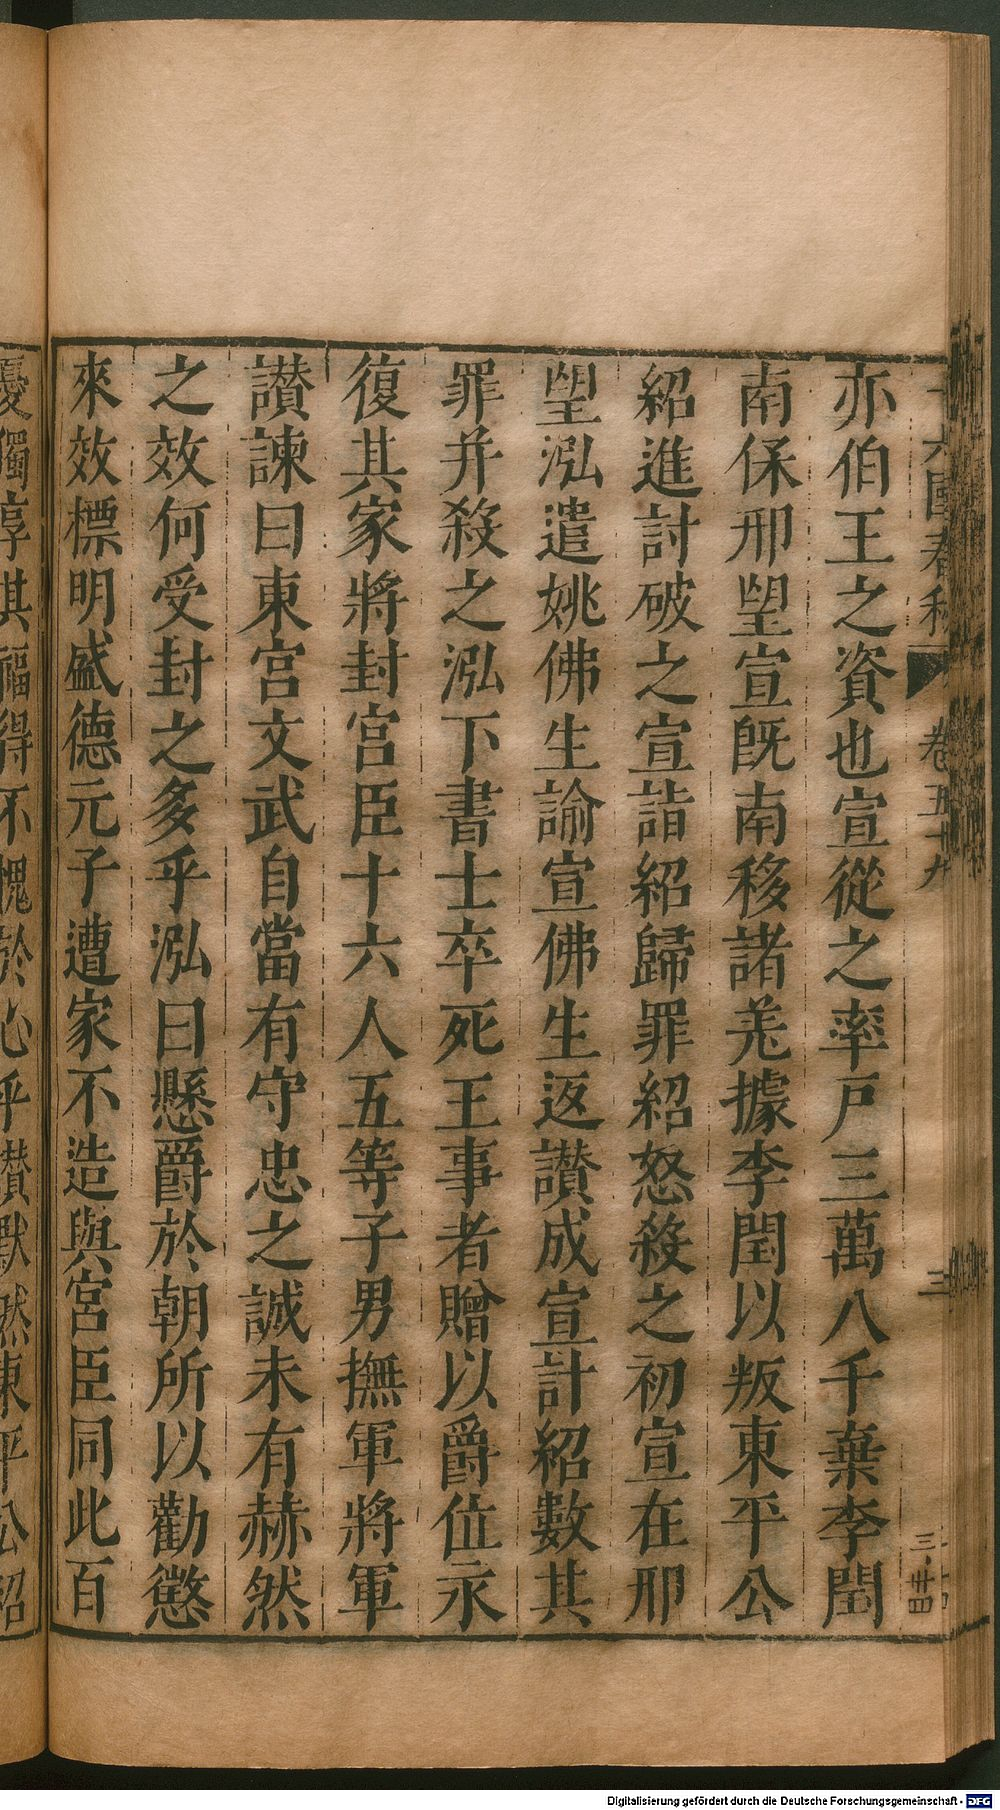 十六國春秋 卷五十九 三
三 廿四
亦伯王之資也宣從之率戸三萬八千棄李閏
南保邢望宣旣南移諸羌據李閏以叛東平公
紹進討破之宣詣紹歸罪紹怒殺之初宣在邢
望泓遣姚佛生諭宣佛生返讃成宣計紹數其
罪并殺之泓下書士卒死王事者贈以爵位永
復其家將封宮臣十六人五等子男撫軍將軍
讃諫曰東宮文武自當有守忠之誠未有赫然
之效何受封之多乎泓曰懸爵於朝所以勸懲
來效標明盛德元子遭家不造與宮臣同此百
憂獨享其福得不愧於心乎讃默然東平公紹
Digitalisierung gefördert durch die Deutsche Forschungsgemeinschaft - DFG